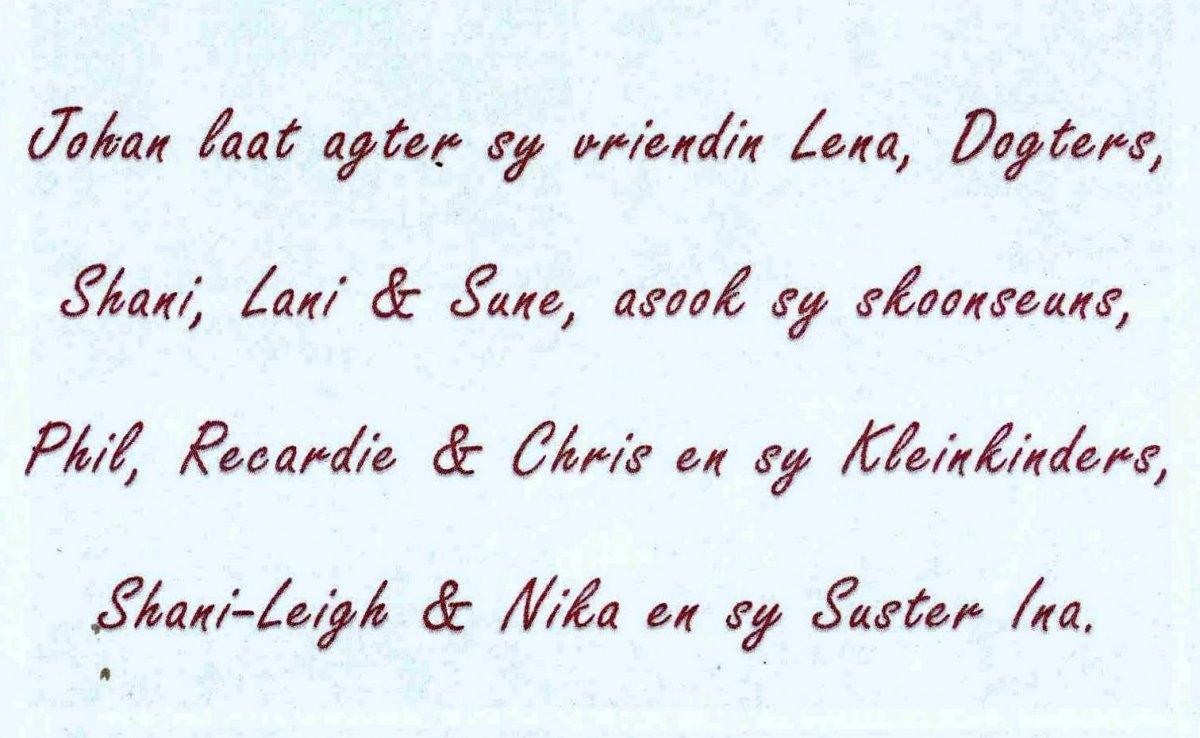 Johan laat agter sy vriendin Lena, Dogters,
Shani, Lani & Sune, asook sy skoonseuns,
Phil, Recardie & Chris en sy Kleinkinders,
Shani-Leigh & Nika en sy Suster Ina.